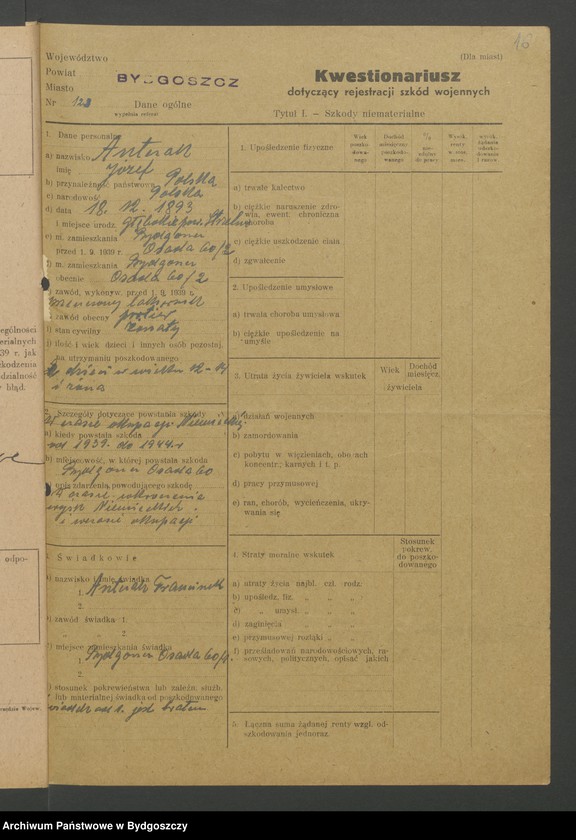 16
Województwo
Powiat
Miasto
BYDGOSZCZ
Nr 123
Dane ogólne
wypełnia referat
(Dla miast)
Kwestionariusz
dotyczący rejestracji szkód wojennych
Tytuł I. — Szkody niematerialne
1. Dane personalne
a) nazwisko Antczak
imię Józef
b) przynależność państwowa Polska
c) narodowość Polska
d) data 18. 12. 1893
i miejsce urodz.
e) m. zamieszkania Bydgoszcz
przed 1. 9. 1939 r. Osada 60/2
f) m. zamieszkania Bydgoszcz
obecnie Osada 60/2
g) zawód, wykonyw. przed 1. 9. 1939 r.
h) zawód obecny portier
i) stan cywilny żonaty
j) ilość i wiek dzieci i innych osób pozostaj.
na utrzymaniu poszkodowanego
dzieci w wieku 12-14
i żona
2. Szczegóły dotyczące powstania szkody
W czasie okupacji Niemieckiej
a) kiedy powstała szkoda
od 1939. do 1944. r
b) miejscowość, w której powstała szkoda
Bydgoszcz Osada 60
opis zdarzenia powodującego szkodę
W czasie wkroczenia
wojsk Niemieckich
i w czasie okupacji
3. Świadkowie
a) nazwisko i imię świadka
1. Antczak Franciszek
2.
b) zawód świadka 1.
„ „ 2.
c) miejsce zamieszkania świadka
1. Bydgoszcz Osada 60/4.
2.
d) stosunek pokrewieństwa lub zależn. służb.
lub materialnej świadka od poszkodowanego
świadek ad 1. jest bratem
1. Upośledzenie fizyczne
Wiek poszkodowanego
Dochód miesięczny poszkodowanego
% niezdolności do pracy
Wysok. renty
a) trwałe kalectwo
b) ciężkie naruszenie zdrowia, ewent. chroniczna
choroba
c) ciężkie uszkodzenie ciała
d) zgwałcenie
2. Upośledzenie umysłowe
a) trwała choroba umysłowa
b) ciężkie upośledzenie na
umyśle
3. Utrata życia żywiciela wskutek
Wiek
Dochód miesięcz.
żywiciela
a) działań wojennych
b) zamordowania
c) pobytu w więzieniach, obozach
koncentr., karnych i t. p.
d) pracy przymusowej
e) ran, chorób, wycieńczenia, ukrywania się
4. Straty moralne wskutek
Stosunek pokrew. do poszkodowanego
a) straty życia najbl. czł. rodz.
b) upośledz. fiz. „ „ „
c) „ umysł. „ „ „
d) zaginięcia „ „ „
e) przymusowej rozłąki „ „
f) prześladowań narodowościowych, rasowych, politycznych, opisać jakich
5. Łączna suma żądanej renty wzgl. odszkodowania jednoraz.
Archiwum Państwowe w Bydgoszczy